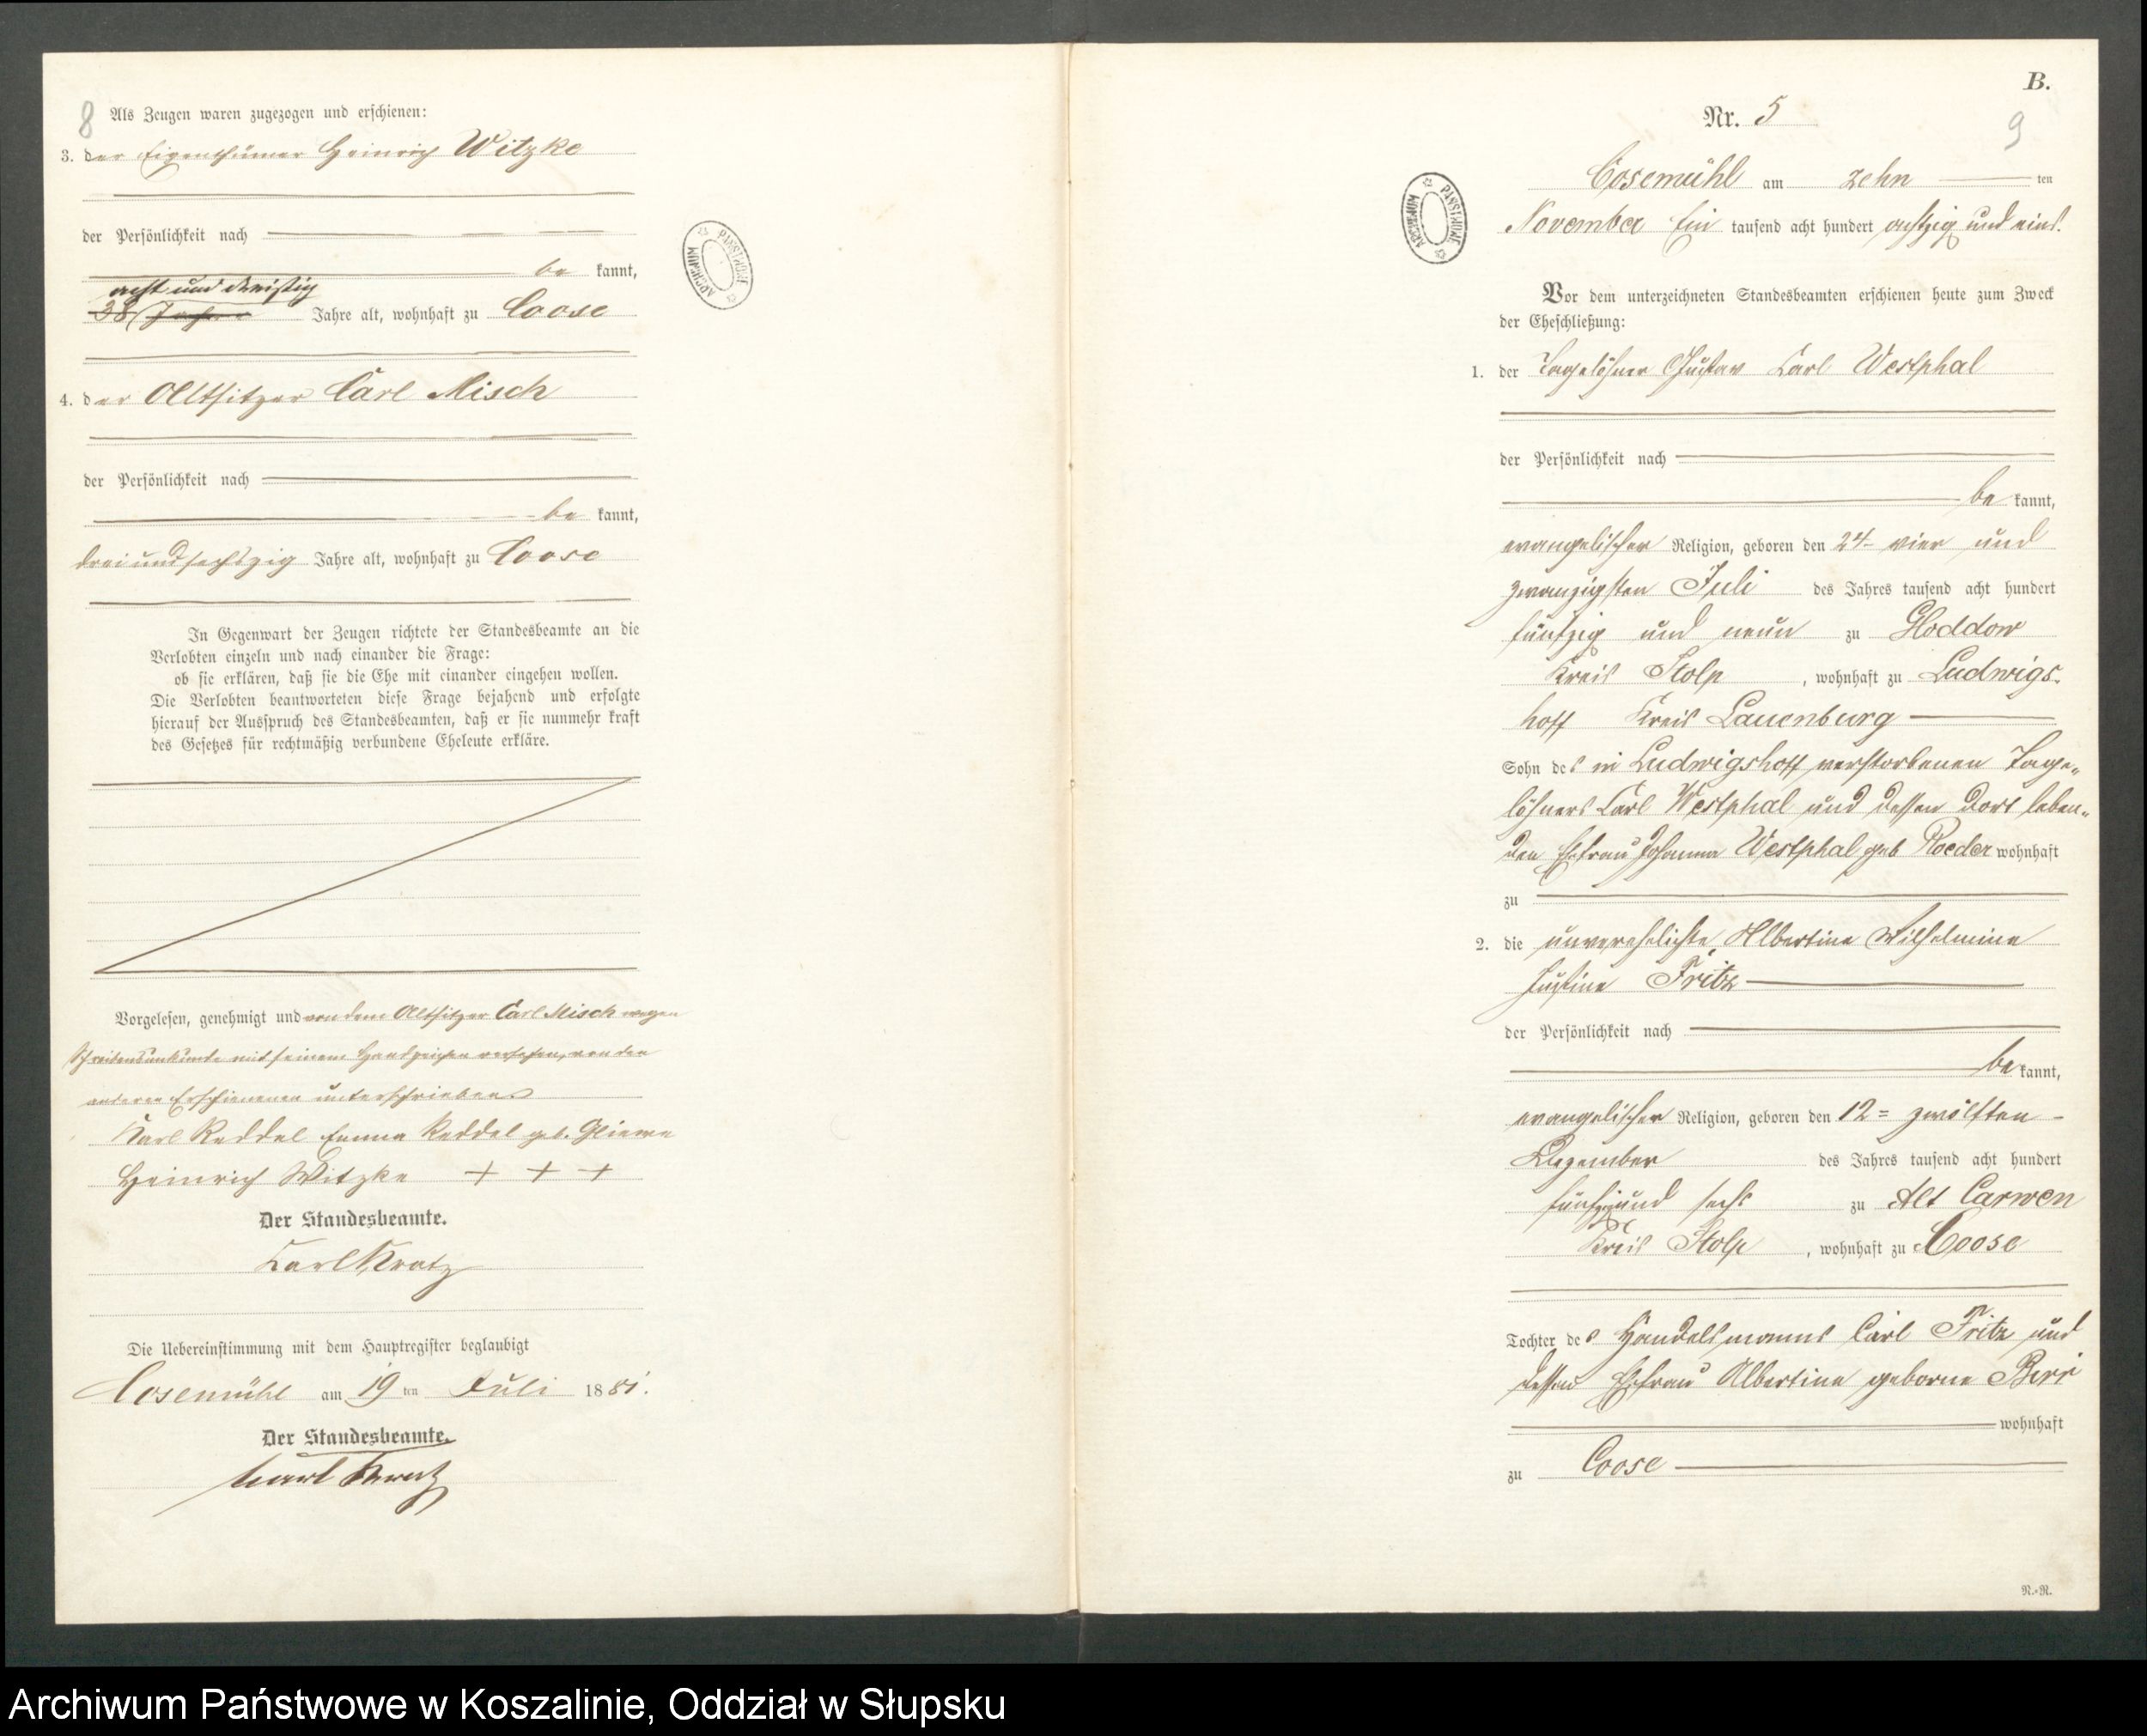 8
Als Zeugen waren zugezogen und erschienen:
3. der Eigenthümer Heinrich Witzke
der Persönlichkeit nach
be kannt,
acht und dreißig
38 Jahre Jahre alt, wohnhaft zu Coose
4. der Altsitzer Carl Misch
der Persönlichkeit nach
be kannt,
drei und sechszig Jahre alt, wohnhaft zu Coose
In Gegenwart der Zeugen richtete der Standesbeamte an die
Verlobten einzeln und nach einander die Frage:
ob sie erklären, daß sie die Ehe mit einander eingehen wollen.
Die Verlobten beantworteten diese Frage bejahend und erfolgte
hierauf der Ausspruch des Standesbeamten, daß er sie nunmehr kraft
des Gesetzes für rechtmäßig verbundene Eheleute erkläre.
Vorgelesen, genehmigt und von dem Altsitzer Carl Misch wegen
Schreibensunkunde mit seinem Handzeichen versehen, von den
anderen Erschienenen unterschrieben
Karl Reddel Emma Reddel geb.
Heinrich Witzke + + +
Der Standesbeamte.
Karl Kratz
Die Uebereinstimmung mit dem Hauptregister beglaubigt
Cosemühl am 19 ten Juli 1881.
Der Standesbeamte.
Karl Kratz
ARCHIWUM PAŃSTWOWE
B.
Nr. 5
9
Cosemühl am zehn ten
November Ein tausend acht hundert achtzig und eins.
ARCHIWUM PAŃSTWOWE
Vor dem unterzeichneten Standesbeamten erschienen heute zum Zweck
der Eheschließung:
1. der Tagelöhner Gustav Carl Westphal
der Persönlichkeit nach
be kannt,
evangelischer Religion, geboren den 24- vier und
zwanzigsten Juli des Jahres tausend acht hundert
fünfzig und neun zu Gloddow
Kreis Stolp, wohnhaft zu Ludwigs-
hoff Kreis Lauenburg
Sohn des in Ludwigshoff verstorbenen Tage-
löhners Carl Westphal und dessen dort leben-
den Ehefrau Johanna Westphal geb Roeder wohnhaft
zu
2. die unverehelichte Albertine Wilhelmine
Justine Fritz
der Persönlichkeit nach
be kannt,
evangelischer Religion, geboren den 12= zwölften -
Dezember des Jahres tausend acht hundert
fünfzig und sechs zu Alt Carwen
Kreis Stolp, wohnhaft zu Coose
Tochter des Handelsmanns Carl Fritz und
dessen Ehefrau Albertine geborne Birr
wohnhaft
zu Coose
N.-N.
Archiwum Państwowe w Koszalinie, Oddział w Słupsku